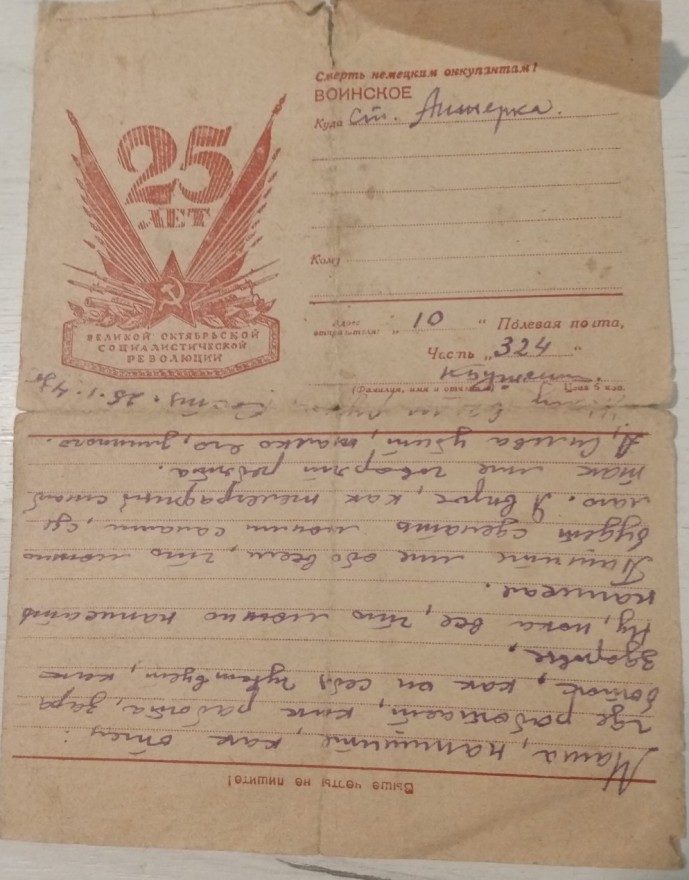 25
ЛЕТ
ВЕЛИКОЙ ОКТЯБРЬСКОЙ
СОЦИАЛИСТИЧЕСКОЙ
РЕВОЛЮЦИИ
Смерть немецким оккупантам!
ВОИНСКОЕ
Куда ст.
Кому
Адрес отправителя: „ 10 “ Полевая почта,
Часть „ 324 “
(Фамилия, имя и отчество) Цена 5 коп.
Выше черты не пишите!
напишите, как отец:
где работает, как работа, зара
боток, как он себя чувствует, как
здоровье.
Ну, пока все, что можно написать
написал.
Пишите мне обо всем, что можно
будет сделать где
Я вырос, как телеграфный столб
так мне говорят ребята.
убит, жалко его, длинного.
25.1.43г